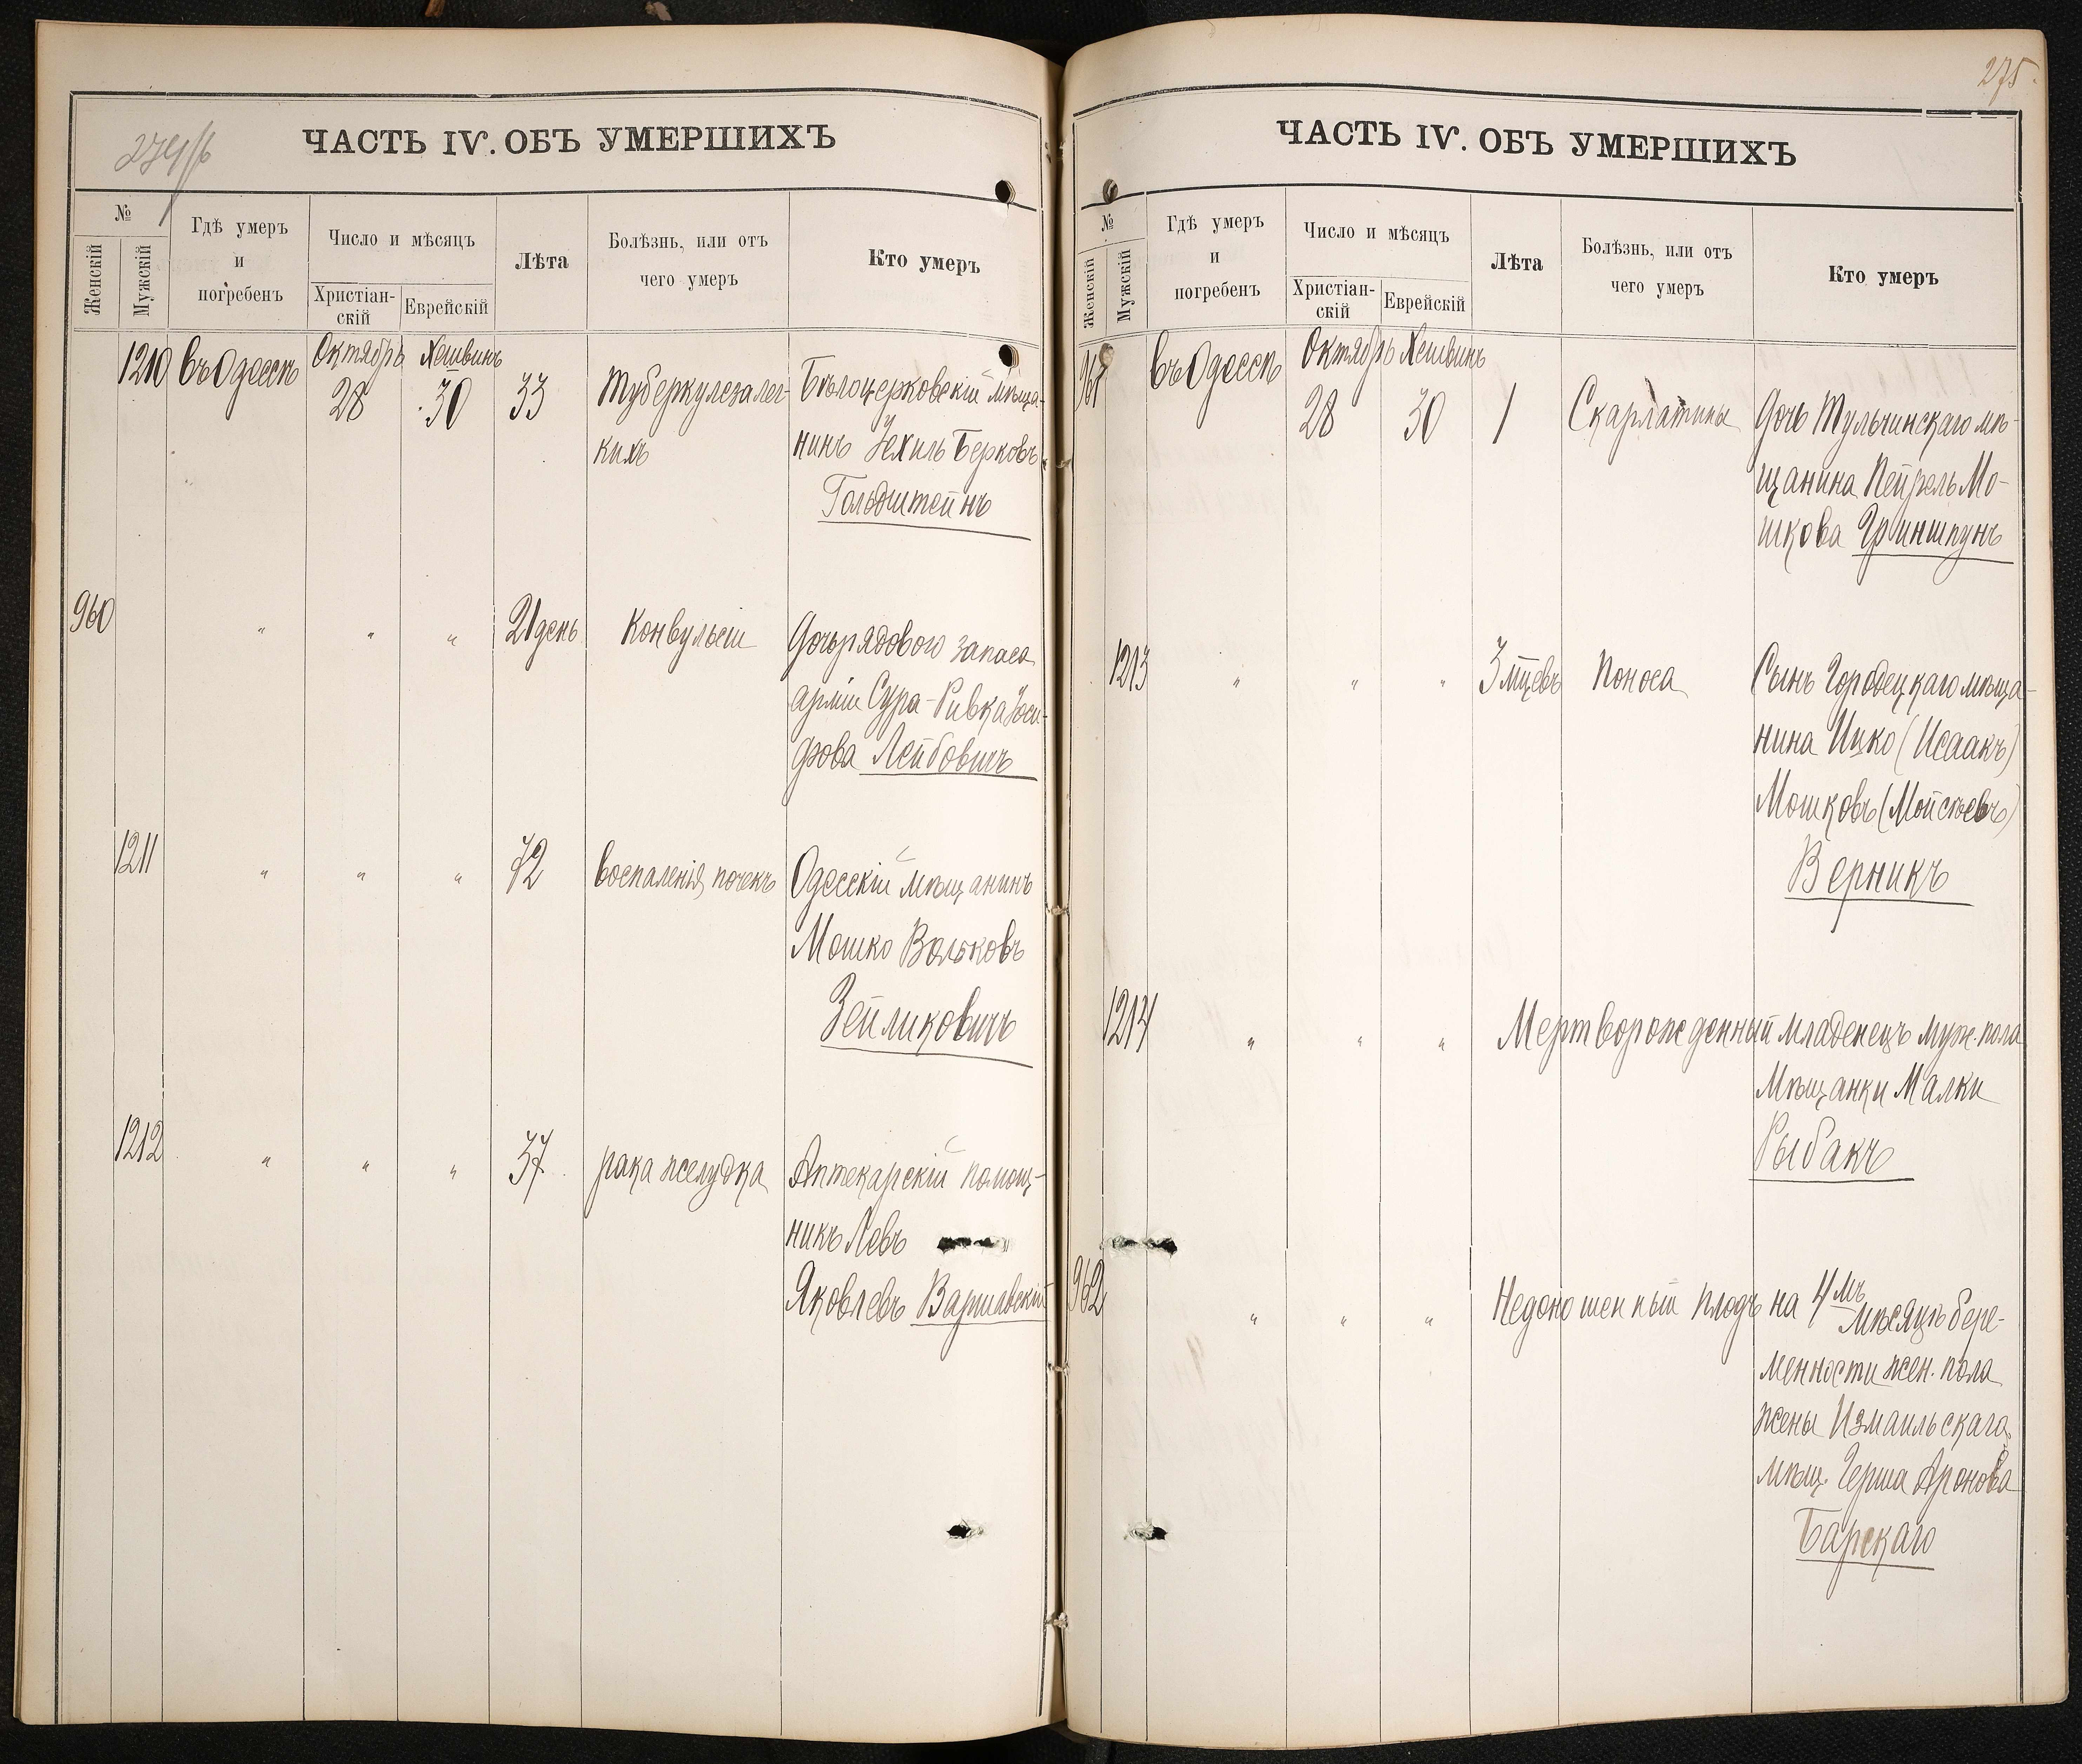 274/б
ЧАСТЬ IV. ОБЪ УМЕРШИХЪ
№
Женскій
Мужскій
Гдѣ умеръ
и
погребенъ
Число и мѣсяцъ
Христіан-
скій
Еврейскій
Лѣта
Болѣзнь, или отъ
чего умеръ
Кто умеръ
1210 въ Одессѣ Октябрь Хешвинъ
28 30 33 Туберкулеза лег- Бѣлоцерковскій мѣща-
кихъ нинъ Іехиль Берковъ
Гольдштейнъ
960 " " " 21 день Конвульсіи Дочь рядового запаса
арміи Сура-Ривка Іоси-
фова Лейбовичъ
1211 " " " 72 воспаленія почекъ Одесскій мѣщанинъ
Мошко Вольковъ
Зейликовичъ
1212 " " " 37 рака желудка Аптекарскій помощ-
никъ Левъ
Яковлевъ Варшавскій
275.
ЧАСТЬ IV. ОБЪ УМЕРШИХЪ
№
Женскій
Мужскій
Гдѣ умеръ
и
погребенъ
Число и мѣсяцъ
Христіан-
скій
Еврейскій
Лѣта
Болѣзнь, или отъ
чего умеръ
Кто умеръ
961 въ Одессѣ Октябрь Хешвинъ
28 30 1 Скарлатины Дочь Тульчинскаго мѣ-
щанина Пейрель Мо-
шкова Гриншпунъ
1213 " " " 3 мцевъ Поноса Сынъ Городецкаго мѣща-
нина Ицко (Исаакъ)
Мошковъ (Мойсѣевъ)
Верникъ
1214 " " " Мертворожденный младенецъ муж. пола
Мѣщанки Малки
Рыбакъ
962 " " " Недоношенный плодъ на 4мъ
мѣсяцѣ бере-
менности жен. пола
жены Измаильскаго
мѣщ. Герша Аронова
Барскаго